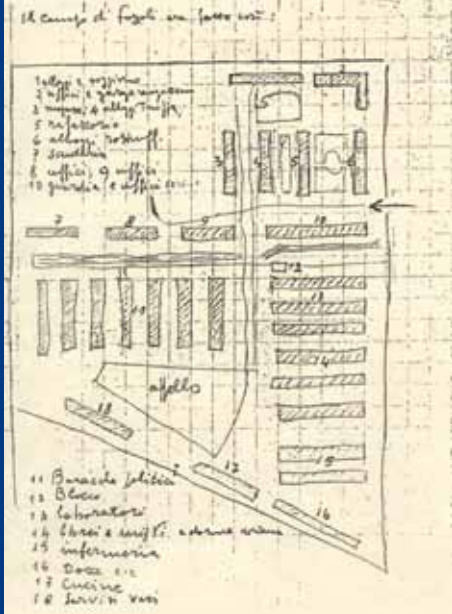 Il campo di Fossoli era fatto così:
1 alloggi e
2 uffici e garage
3 magazz. 4 alloggi Truppa
5 refettorio
6 alloggi sottuff.
7 scuderia
8 uffici, 9 uffici
10 guardia e uffici
3 4 5 6
7 8 9 10
12
11
13
14
appello
18
15
17
16
11 Baracche politici
12 Blocco
13 laboratori
14 Ebrei e misti. e donne ariane
15 infermeria
16 Docce
17 Cucine
18 Servizi vari